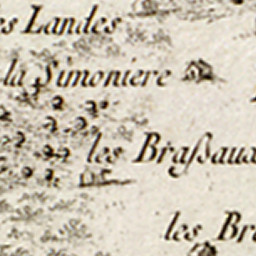 es Landes
la Simoniere
les Braſsaux
les Br